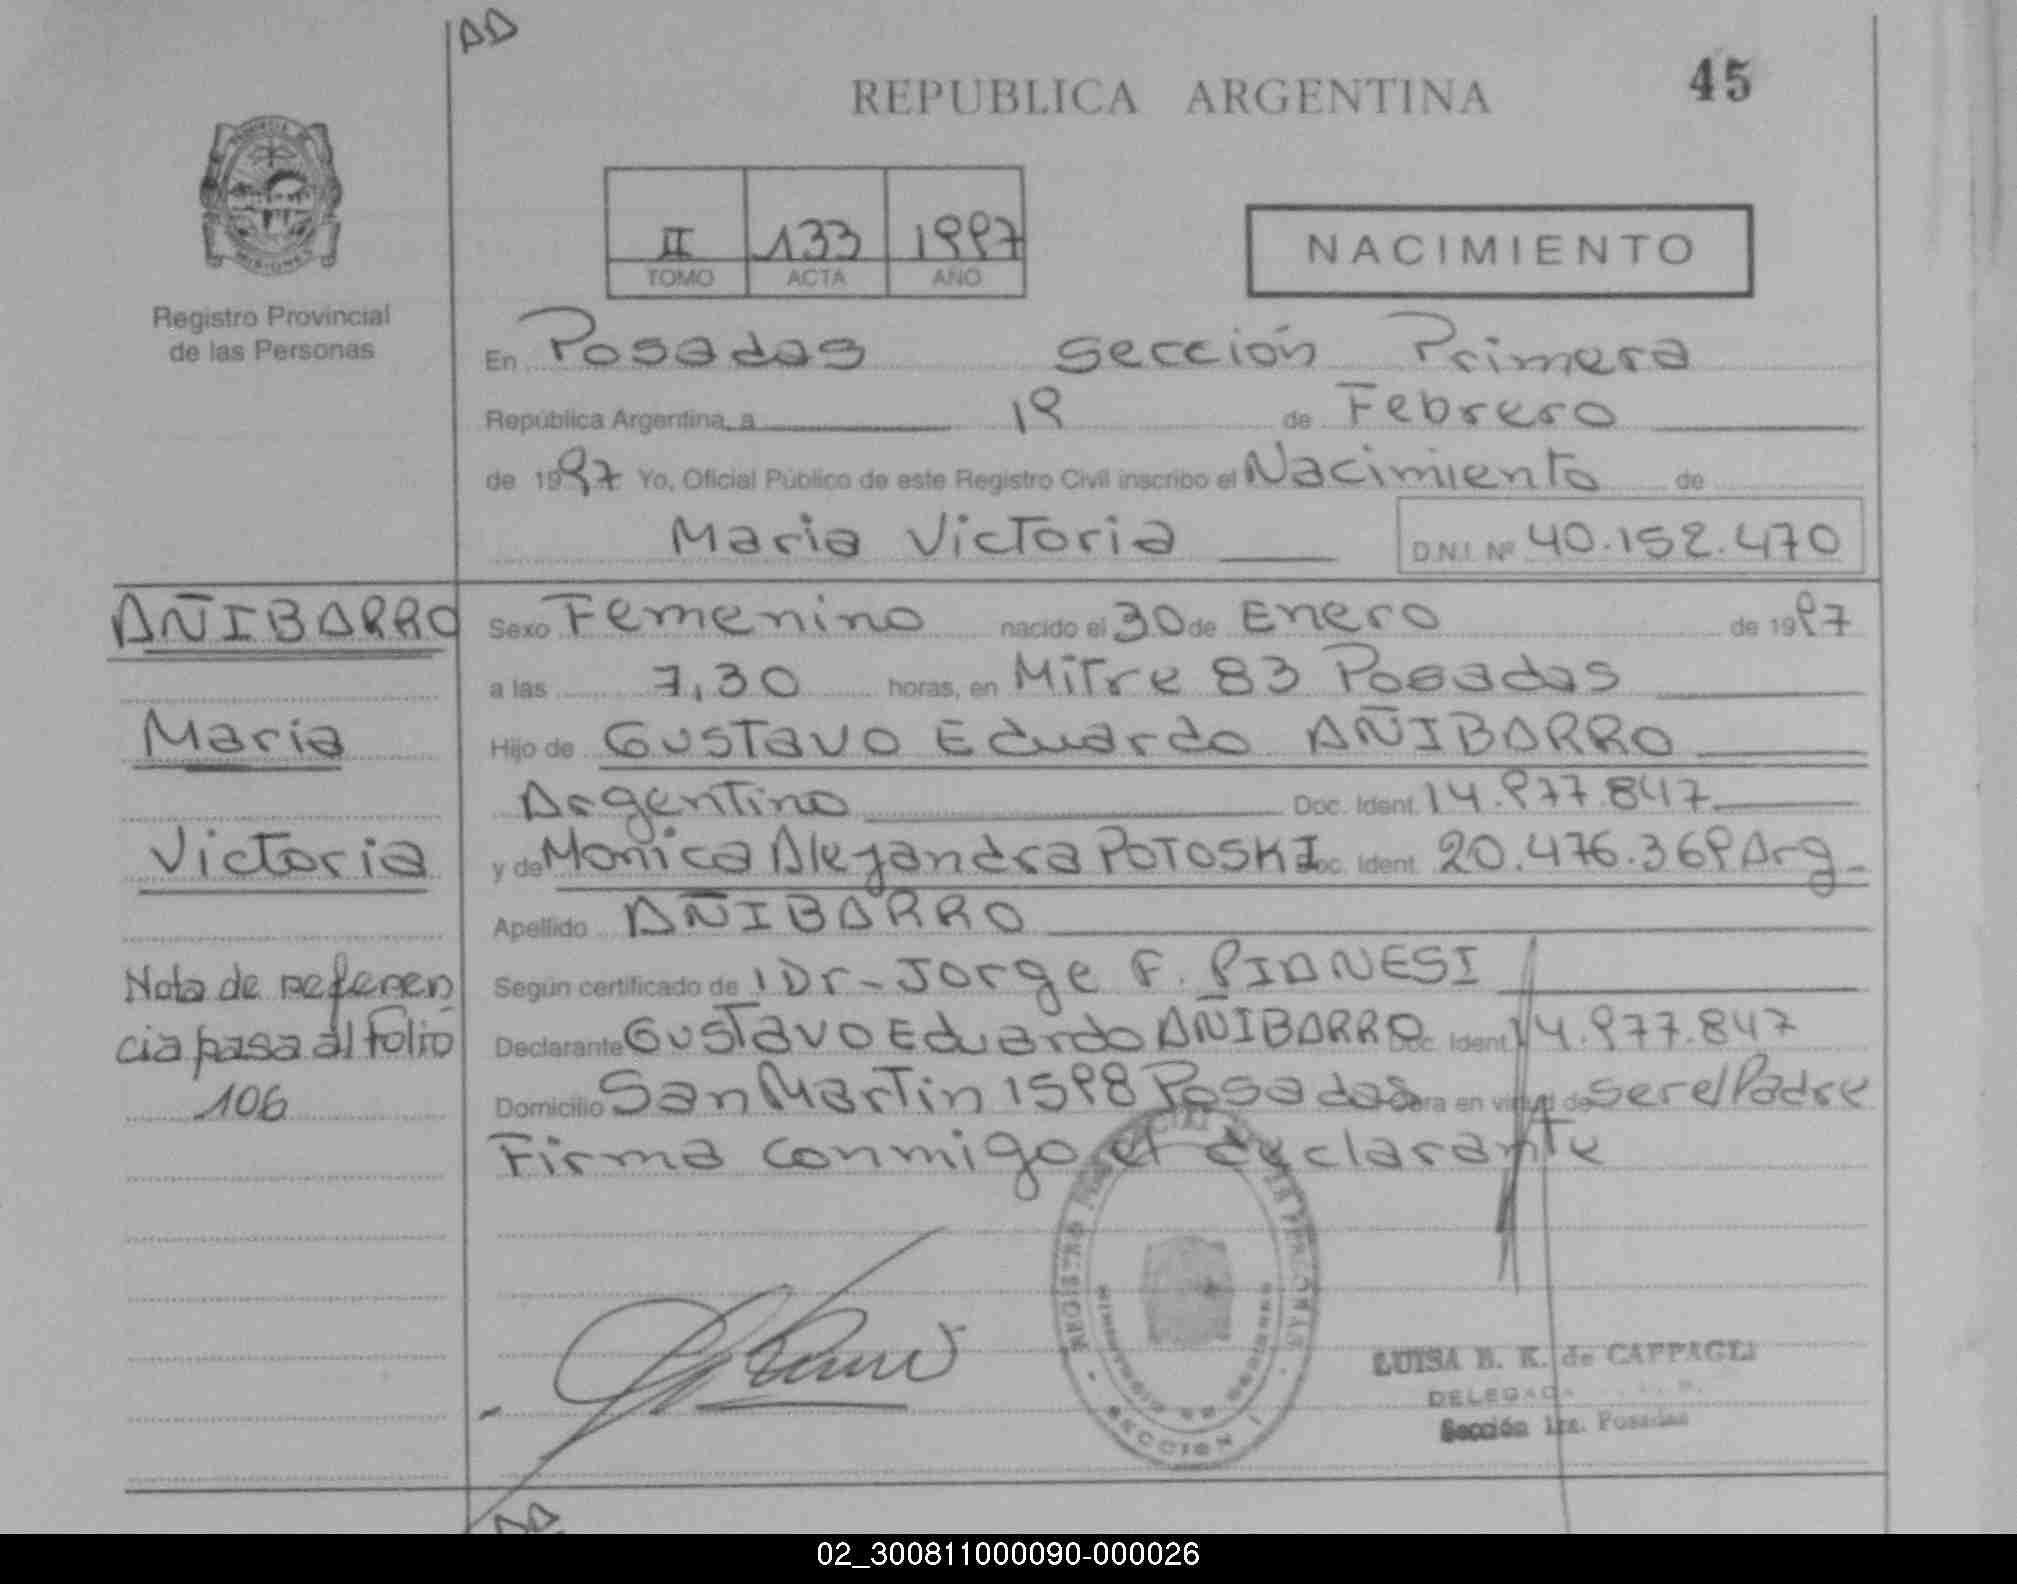 AD
REPUBLICA ARGENTINA 45
II 133 1997
TOMO ACTA AÑO
NACIMIENTO
MISIONES
Registro Provincial
de las Personas
En Posadas sección Primera
República Argentina, a 19 de Febrero
de 1997 Yo, Oficial Público de este Registro Civil inscribo el Nacimiento de
Maria Victoria D.N.I. Nº 40.152.470
AÑIBARRO
Maria
Victoria
Nota de referen
cia pasa al folio
106
Sexo Femenino nacido el 30 de Enero de 1997
a las 7,30 horas, en Mitre 83 Posadas
Hijo de Gustavo Eduardo AÑIBARRO
Argentino Doc. Ident. 14.977.847
y de Monica Alejandra POTOSKI Doc. Ident. 20.476.369 Arg
Apellido AÑIBARRO
Según certificado de 1 Dr - Jorge F. PIANESI
Declarante Gustavo Eduardo AÑIBARRO Doc. Ident. 14.977.847
Domicilio San Martin 1598 Posadas en virtud de ser el Padre
Firma conmigo el declarante
REGISTRO DE LAS PERSONAS
SECCION
LUISA B. K. de CAPPAGLI
DELEGADA
Sección 1ra. Posadas
02_300811000090-000026